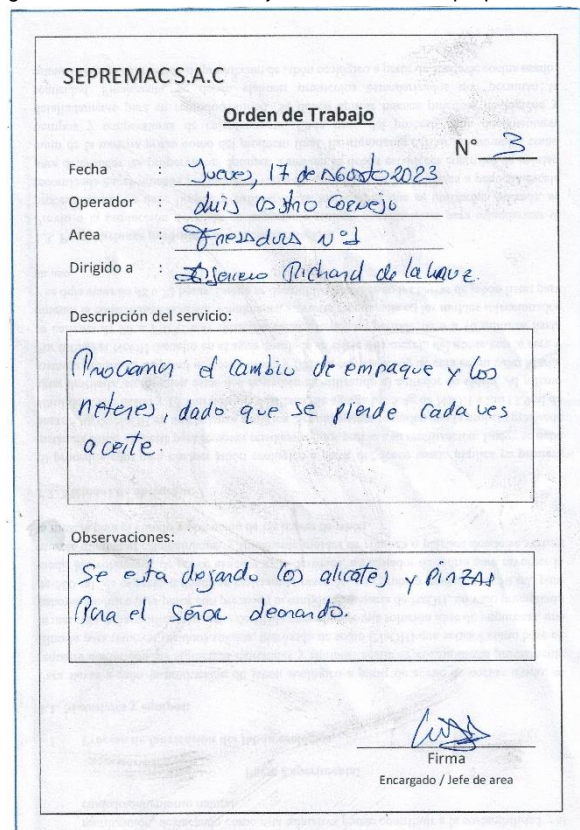 SEPREMAC S.A.C
Orden de Trabajo
N° 3
Fecha : Jueves, 17 de Agosto 2023
Operador : Luis Castro Cornejo
Area : Fresadora N°1
Dirigido a : Richard de la
Descripción del servicio:
Programar el cambio de empaque y los
retenes, dado que se pierde cada ves
aceite.
Observaciones:
Se esta dejando los alicates y Pinzas
Para el Señor Leonardo.
Firma
Encargado / Jefe de area